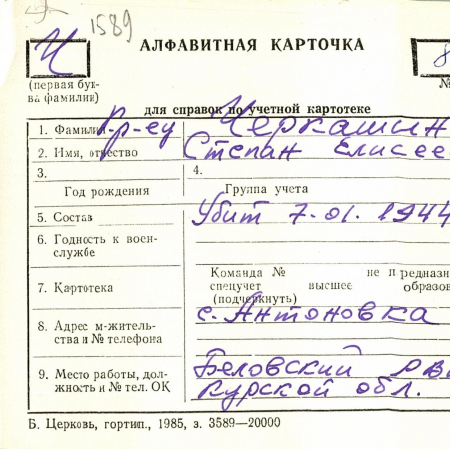 1589
Ч
АЛФАВИТНАЯ КАРТОЧКА
8
(первая бук-
ва фамилии)
№
для справок по учетной картотеке
1. Фамилия р-р-еу Черкашын
2. Имя, отчество Степан Елисее
3. 4.
Год рождения Группа учета
5. Состав Убит 7.01.1944
6. Годность к воен-
службе
7. Картотека
Команда № не предназн
спецучет высшее образов
(подчеркнуть)
8. Адрес м-житель-
ства и № телефона
с. Антоновка
9. Место работы, дол-
жность и № тел. ОК
Беловский РВ
Курской обл.
Б. Церковь, гортип., 1985, з. 3589—20000